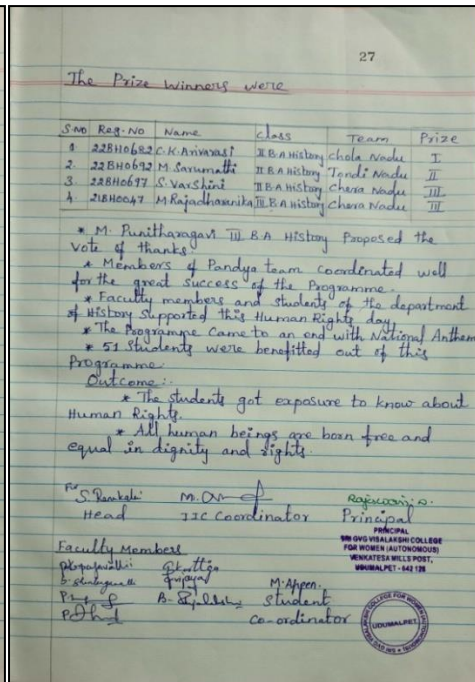 27
The Prize Winners were
S.No Reg.No Name Class Team Prize
1. 22BH0682 C.K.Arivarasi II B.A History Chola Nadu I
2. 22BH0692 M. Sarumathi II B.A History Tondi Nadu II
3. 22BH0697 S. Varshini II B.A History Chera Nadu III
4. 21BH0047 M Rajadharanika III B.A History Chera Nadu III
* M. Punitharagavi III B.A History Proposed the
Vote of thanks.
* Members of Pandya team Coordinated well
for the great success of the Programme.
* Faculty members and students of the department
of History Supported this Human Rights day
* The Programme Came to an end with National Anthem
* 51 Students were benefitted out of this
Programme.
Outcome:-
* The students got exposure to know about
Human Rights.
* All human beings are born free and
equal in dignity and rights.
For
Head Coordinator Principal
PRINCIPAL
SRI GVG VISALAKSHI COLLEGE
FOR WOMEN (AUTONOMOUS)
VENKATESA MILLS POST,
UDUMALPET - 642 128
Faculty Members
Student
Co-ordinator
UDUMALPET